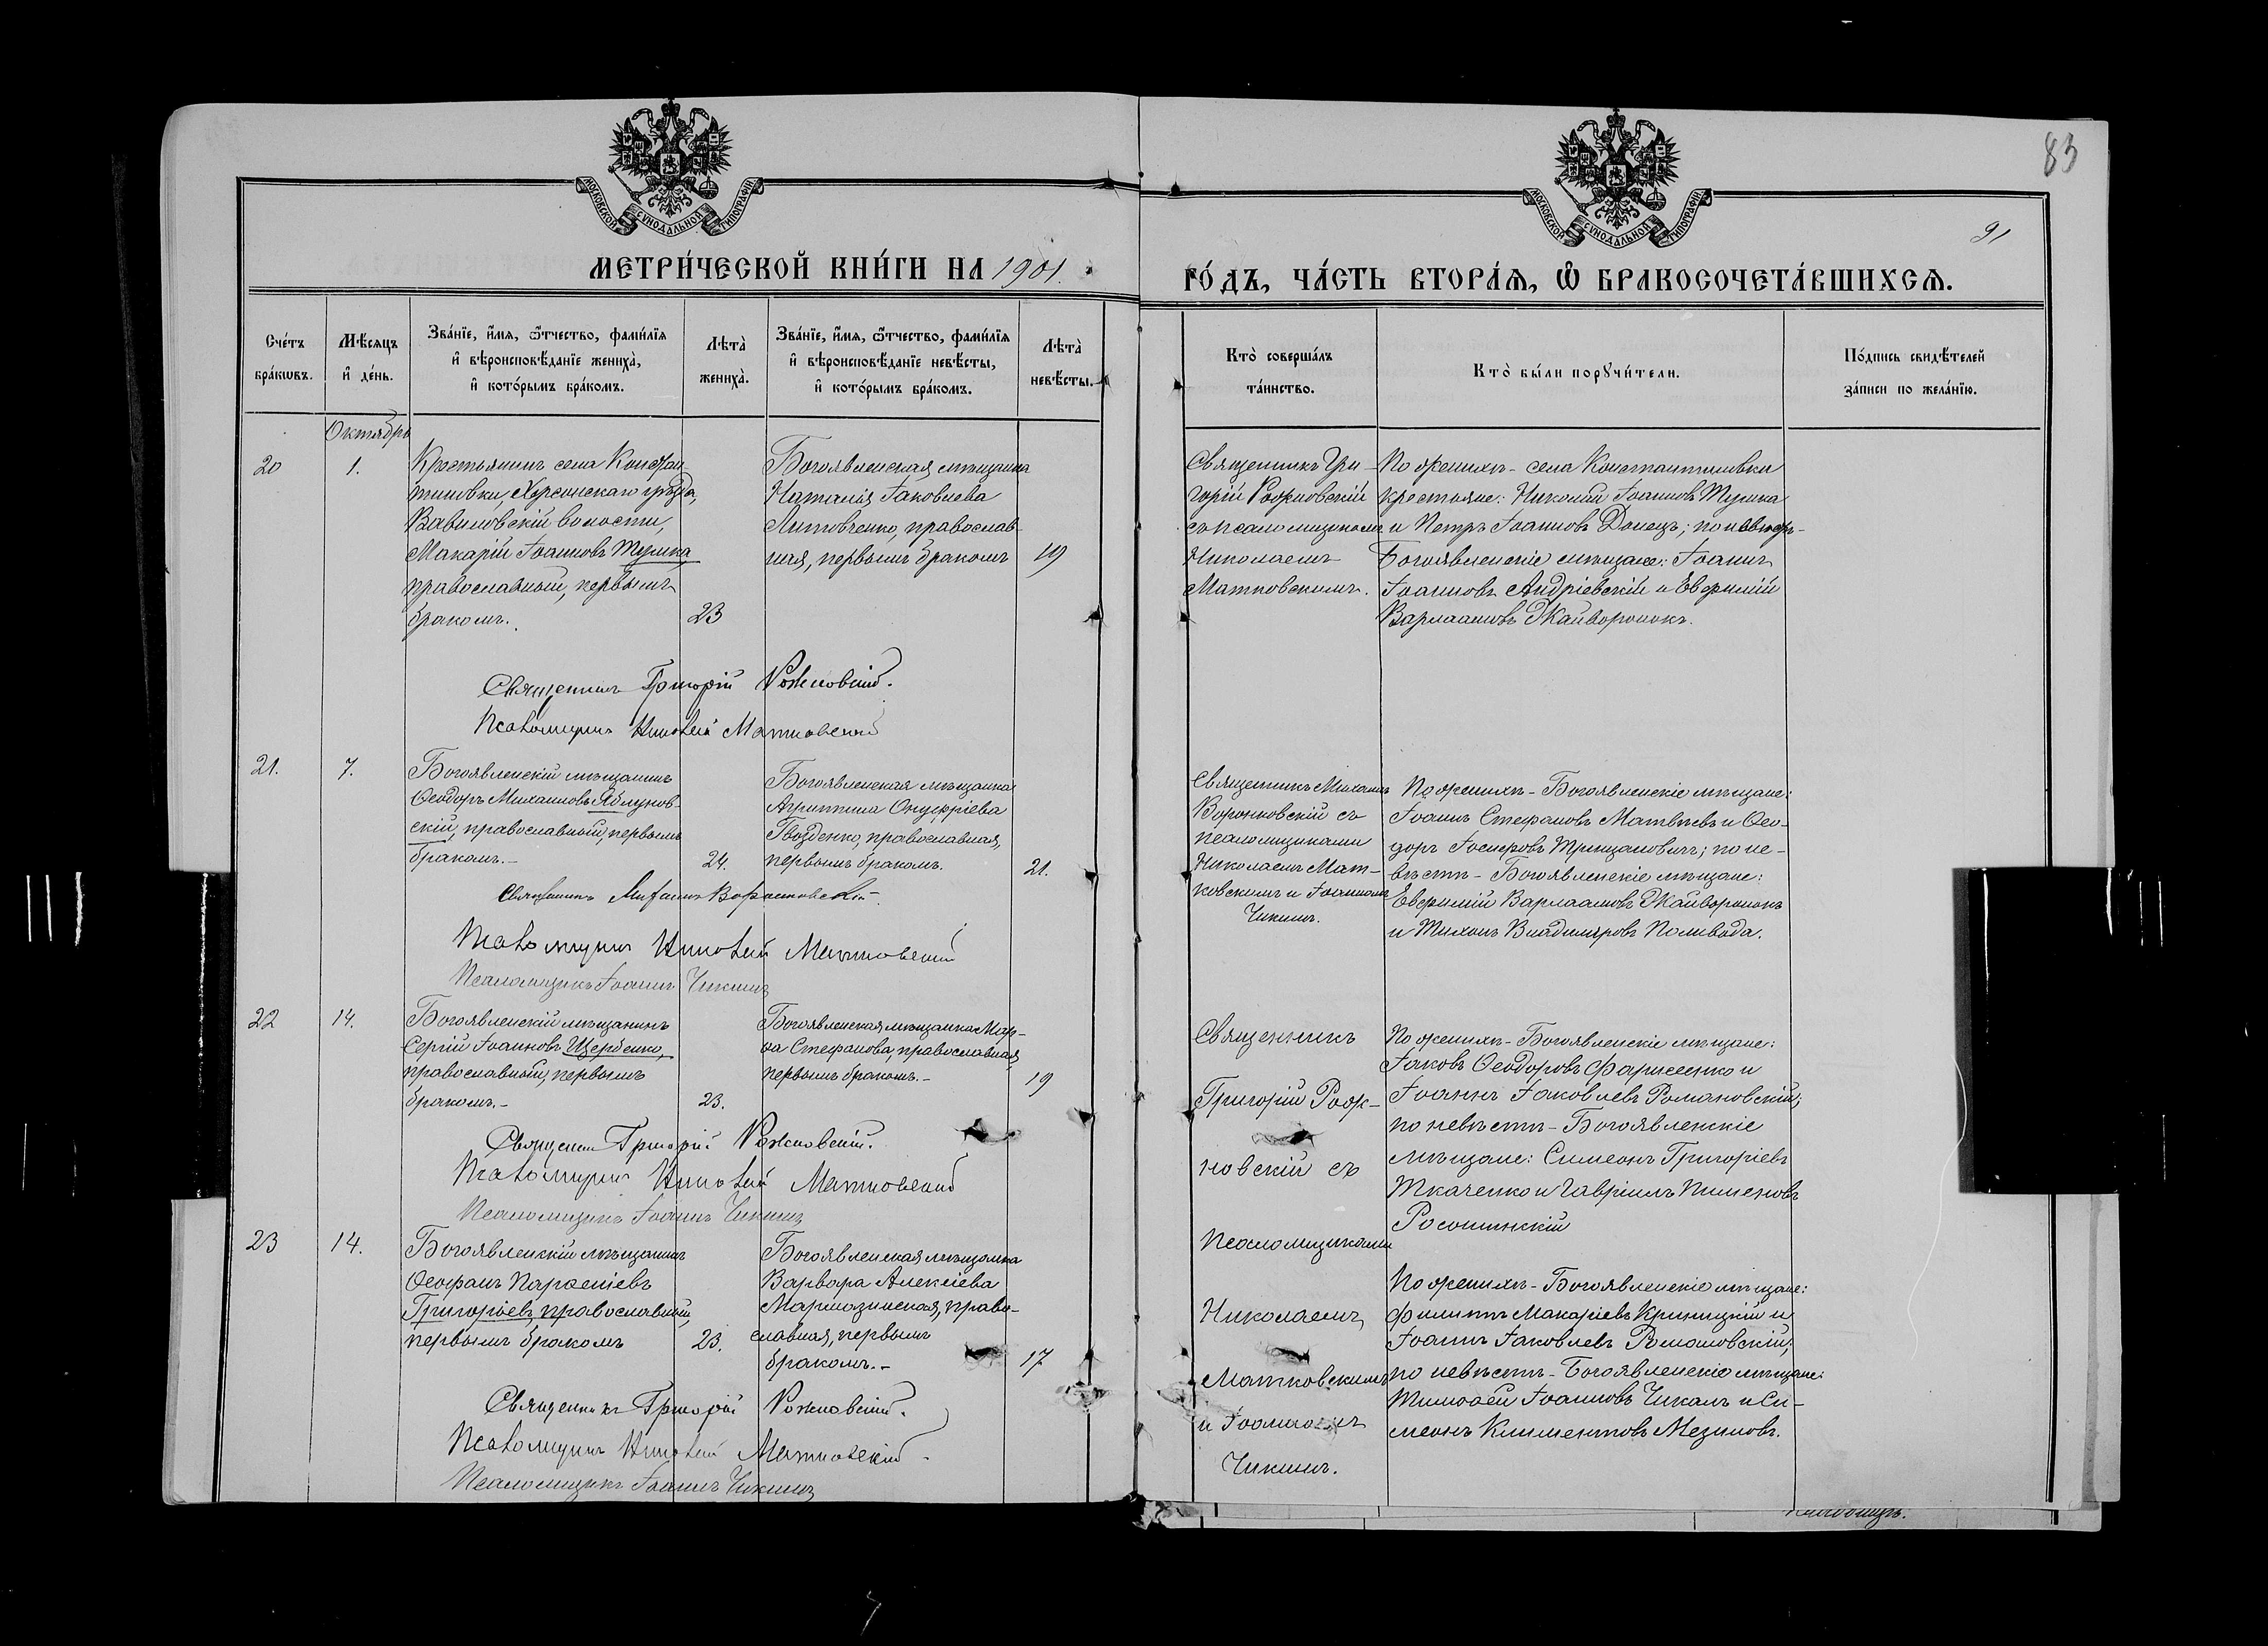 83
91
МОСКОВСКОЙ СУНОДАЛЬНОЙ ТИПОГРАФІИ
МОСКОВСКОЙ СУНОДАЛЬНОЙ ТИПОГРАФІИ
МЕТРИ́ЧЕСКОЙ КНИ́ГИ НА 1901.
ГО́ДЪ, ЧА́СТЬ ВТОРА́Ѧ, Ѽ БРАКОСОЧЕТА́ВШИХСѦ.
Сче́тъ бра́кѡвъ.
Мѣ́сяцъ и҆ де́нь.
Зва́нїе, и҆́мя, ѻ҆́тчество, фами́лїя и҆ вѣроисповѣ́данїе жениха̀, и҆ кото́рымъ бра́комъ.
Лѣта̀ жениха̀.
Зва́нїе, и҆́мя, ѻ҆́тчество, фами́лїя и҆ вѣроисповѣ́данїе невѣ́сты, и҆ кото́рымъ бра́комъ.
Лѣта̀ невѣ́сты.
Кто̀ соверша́лъ та́инство.
Кто̀ бы́ли порꙋчи́тели.
По́дпись свидѣ́телей за́писи по жела́нїю.
Октябрь
20
1.
Крестьянинъ села Констан-
тиновки, Херсонскаго уѣзда,
Вавиловской волости,
Макарій Іоанновъ Тушка,
православный, первымъ
бракомъ.
23
Богоявленская мѣщанка
Наталія Іаковлева
Литовченко, православ-
ная, первымъ бракомъ
19
Священникъ Гри-
горій Рожновскій
съ псаломщикомъ
Николаемъ
Матковскимъ.
По женихѣ - села Константиновки
крестьяне: Николай Іоанновъ Тушка
и Петръ Іоанновъ Донецъ; по невѣстѣ-
Богоявленскіе мѣщане: Іоаннъ
Іоанновъ Андріевскій и Евфимій
Варлаамовъ Жайворонокъ.
Священникъ Григорій Рожновскій.
Псаломщикъ Николай Матковскій
21.
7.
Богоявленскій мѣщанинъ
Ѳеодоръ Михаиловъ Яблунов-
скій, православный, первымъ
бракомъ.-
24.
Богоявленская мѣщанка
Агриппина Онуфріева
Гвозденко, православная,
первымъ бракомъ.
21.
Священникъ Михаилъ
Воронковскій съ
псаломщиками
Николаемъ Мат-
ковскимъ и Іоанномъ
Чикинъ.
По женихѣ - Богоявленскіе мѣщане:
Іоаннъ Стефановъ Матвѣевъ и Ѳео-
доръ Іосифовъ Трицановичъ; по не-
вѣстѣ - Богоявленскіе мѣщане:
Евфимій Варлаамовъ Жайворонокъ
и Тихонъ Владиміровъ Поливода.
Священникъ Михаилъ Воронковскій.
Псаломщикъ Николай Матковскій
Псаломщикъ Іоаннъ Чикинъ
22
14.
Богоявленскій мѣщанинъ
Сергій Іоанновъ Щербенко,
православный, первымъ
бракомъ.-
23.
Богоявленская мѣщанка Мар-
ѳа Стефанова, православная,
первымъ бракомъ.-
19
Священникъ
Григорій Рож-
новскій съ
псаломщиками
Николаемъ
Матковскимъ
и Іоанномъ
Чикинъ.
По женихѣ - Богоявленскіе мѣщане:
Іаковъ Ѳеодоровъ Фарисеенко и
Іоаннъ Іаковлевъ Романовскій;
по невѣстѣ - Богоявленскіе
мѣщане: Симеонъ Григоріевъ
Ткаченко и Гавріилъ Пименовъ
Росошинскій
Священникъ Григорій Рожновскій.
Псаломщикъ Николай Матковскій
Псаломщикъ Іоаннъ Чикинъ
23
14.
Богоявленскій мѣщанинъ
Ѳеофанъ Парѳеніевъ
Григорьевъ, православный,
первымъ бракомъ
23.
Богоявленская мѣщанка
Варвара Алексіева
Мармазинская, право-
славная, первымъ
бракомъ.-
17
По женихѣ - Богоявленскіе мѣщане:
Филиппъ Макаріевъ Криницкій и
Іоаннъ Іаковлевъ Романовскій;
по невѣстѣ - Богоявленскіе мѣщане:
Тимоѳей Іоанновъ Чикалъ и Си-
меонъ Климентовъ Мезиновъ.
Священникъ Григорій Рожновскій.
Псаломщикъ Николай Матковскій.
Псаломщикъ Іоаннъ Чикинъ